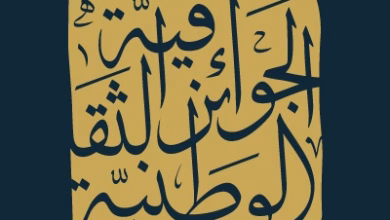 الجوائز الثقافيّة
الوطنيّة